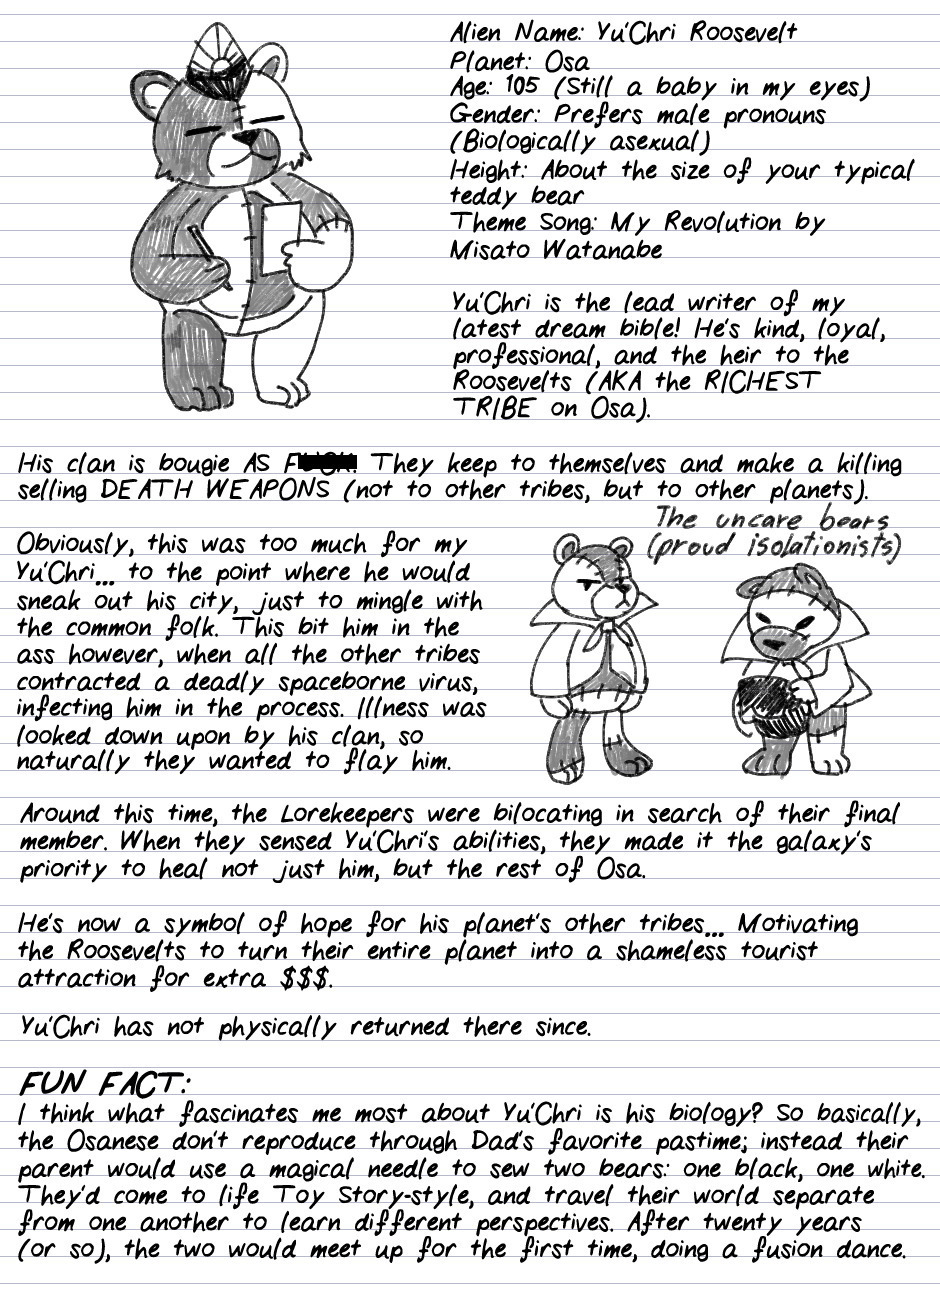 Alien Name: Yu'Chri Roosevelt
Planet: Osa
Age: 105 (Still a baby in my eyes)
Gender: Prefers male pronouns
(Biologically asexual)
Height: About the size of your typical
teddy bear
Theme Song: My Revolution by
Misato Watanabe
Yu'Chri is the lead writer of my
latest dream bible! He's kind, loyal,
professional, and the heir to the
Roosevelts (AKA the RICHEST
TRIBE on Osa).
His clan is bougie AS They keep to themselves and make a killing
selling DEATH WEAPONS (not to other tribes, but to other planets).
The uncare bears
(proud isolationists)
Obviously, this was too much for my
Yu'Chri... to the point where he would
sneak out his city, just to mingle with
the common folk. This bit him in the
ass however, when all the other tribes
contracted a deadly spaceborne virus,
infecting him in the process. Illness was
looked down upon by his clan, so
naturally they wanted to flay him.
Around this time, the Lorekeepers were bilocating in search of their final
member. When they sensed Yu'Chri's abilities, they made it the galaxy's
priority to heal not just him, but the rest of Osa.
He's now a symbol of hope for his planet's other tribes... Motivating
the Roosevelts to turn their entire planet into a shameless tourist
attraction for extra $$$.
Yu'Chri has not physically returned there since.
FUN FACT:
I think what fascinates me most about Yu'Chri is his biology? So basically,
the Osanese don't reproduce through Dad's favorite pastime; instead their
parent would use a magical needle to sew two bears: one black, one white.
They'd come to life Toy Story-style, and travel their world separate
from one another to learn different perspectives. After twenty years
(or so), the two would meet up for the first time, doing a fusion dance.